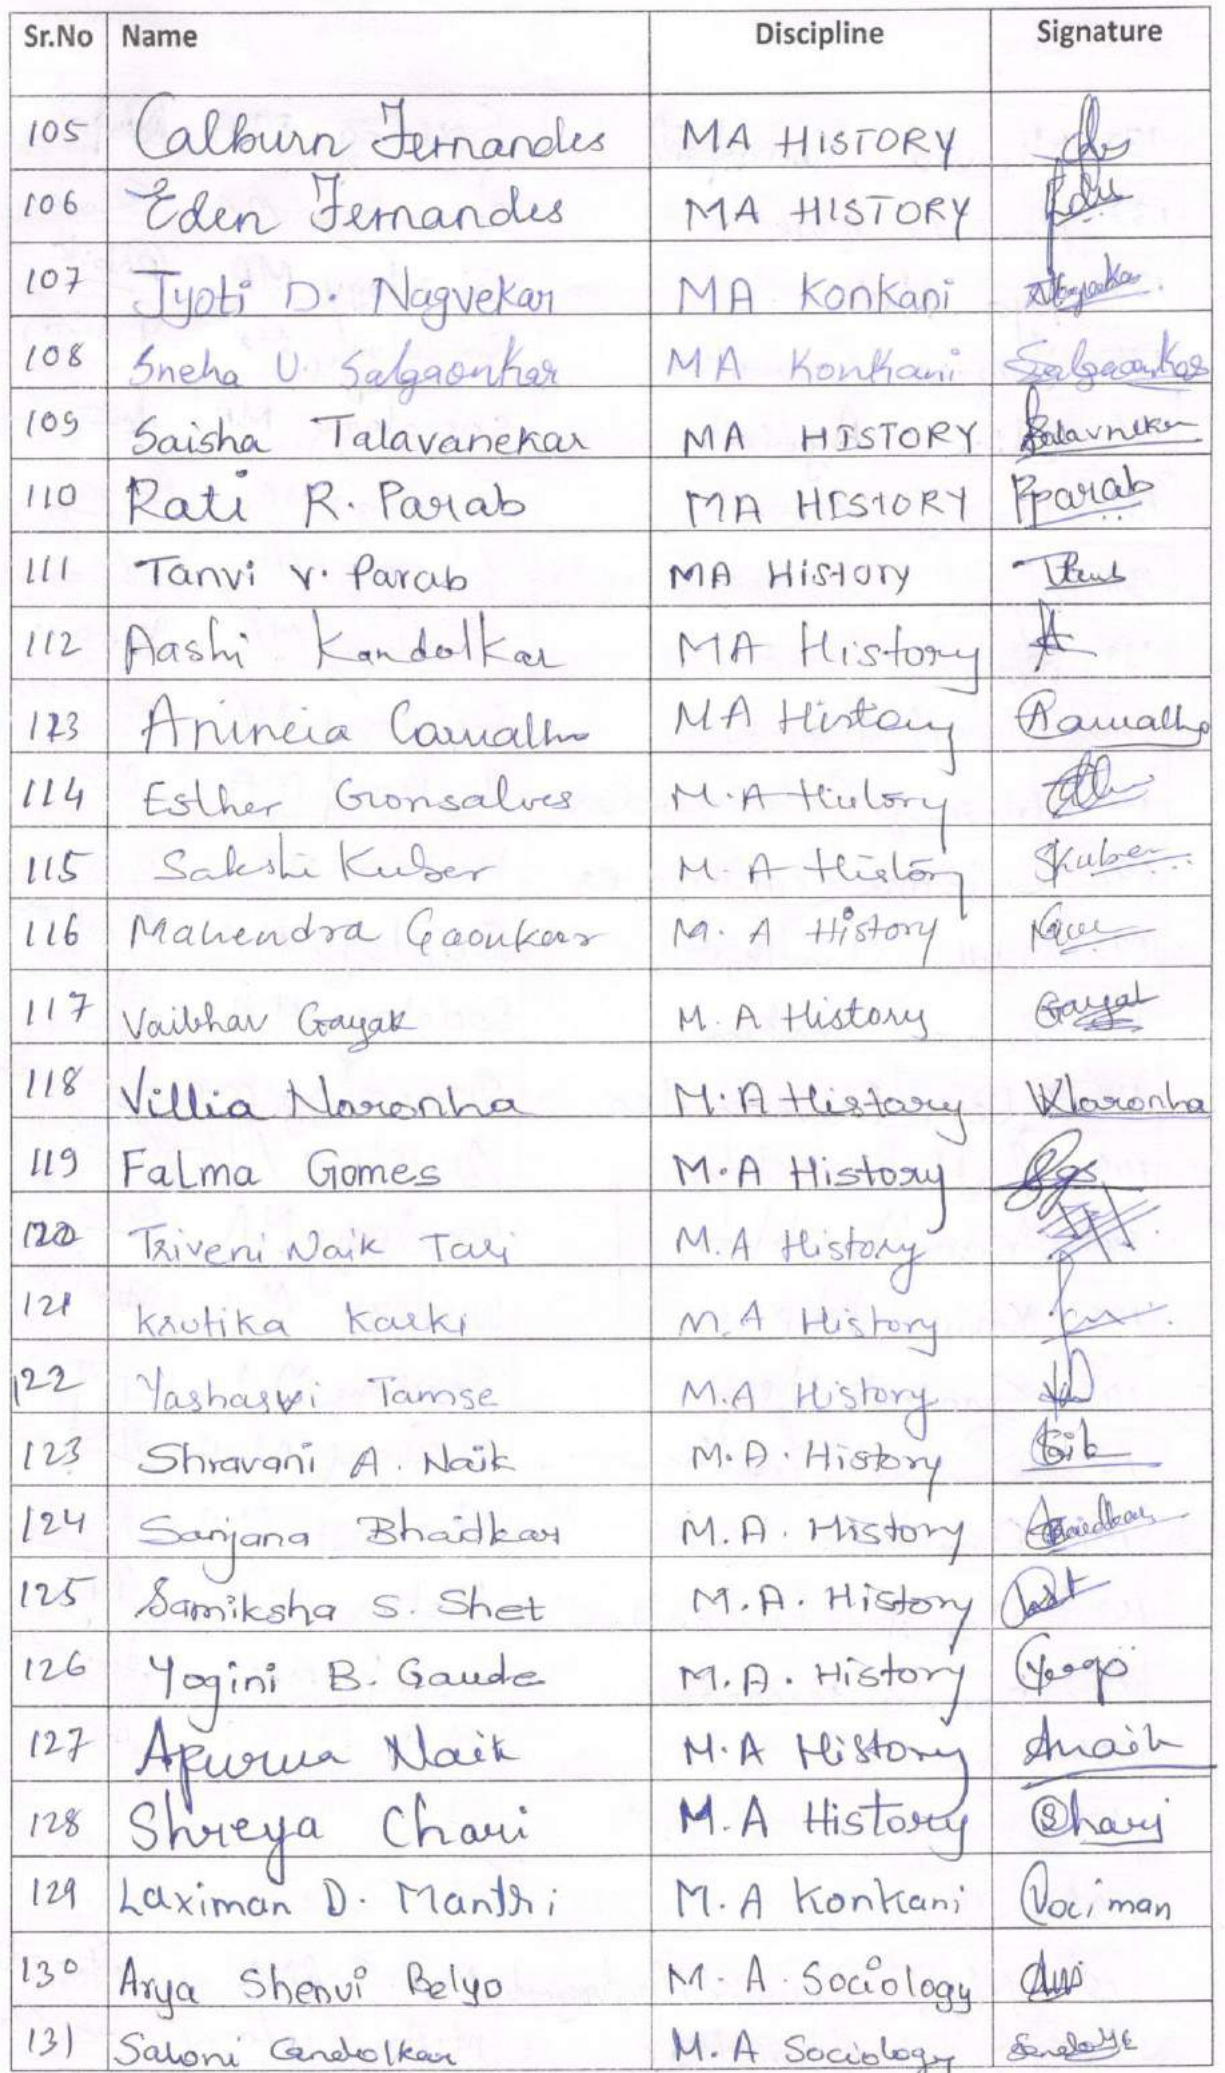 Sr.No Name Discipline Signature
105 Calburn Fernandes MA HISTORY
106 Eden Fernandes MA HISTORY
107 Jyoti D. Nagvekar MA Konkani
108 Sneha U. Salgaonkar MA Konkani Salgaonkar
109 Saisha Talavanekar MA HISTORY
110 Rati R. Parab MA HISTORY Rparab
111 Tanvi V. Parab MA History
112 Aashi Kandolkar MA History
113 Anincia Carvalho MA History
114 Esther Gonsalves M.A History
115 Sakshi Kuber M.A History Skuber
116 Mahendra Gaonkar M.A History
117 Vaibhav Gayak M.A History Gayak
118 Villia Noronha M.A History VNoronha
119 Falma Gomes M.A History
120 Triveni Naik Tari M.A History
121 Krutika Karki M.A History
122 Yashasvi Tamse M.A History
123 Shravani A. Naik M.A. History
124 Sanjana Bhaidkar M.A. History
125 Samiksha S. Shet M.A. History
126 Yogini B. Gaude M.A. History
127 Apurva Naik M.A History Anaik
128 Shreya Chari M.A History SChari
129 Laximan D. Manthri M.A Konkani
130 Arya Shenvi Belyo M.A. Sociology
131 Saloni Candolkar M.A Sociology